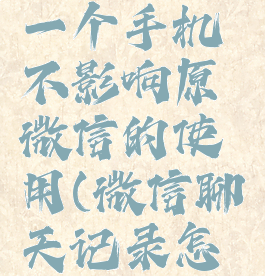 一个手机
不影响原
微信的使
用(微信聊
天记录怎